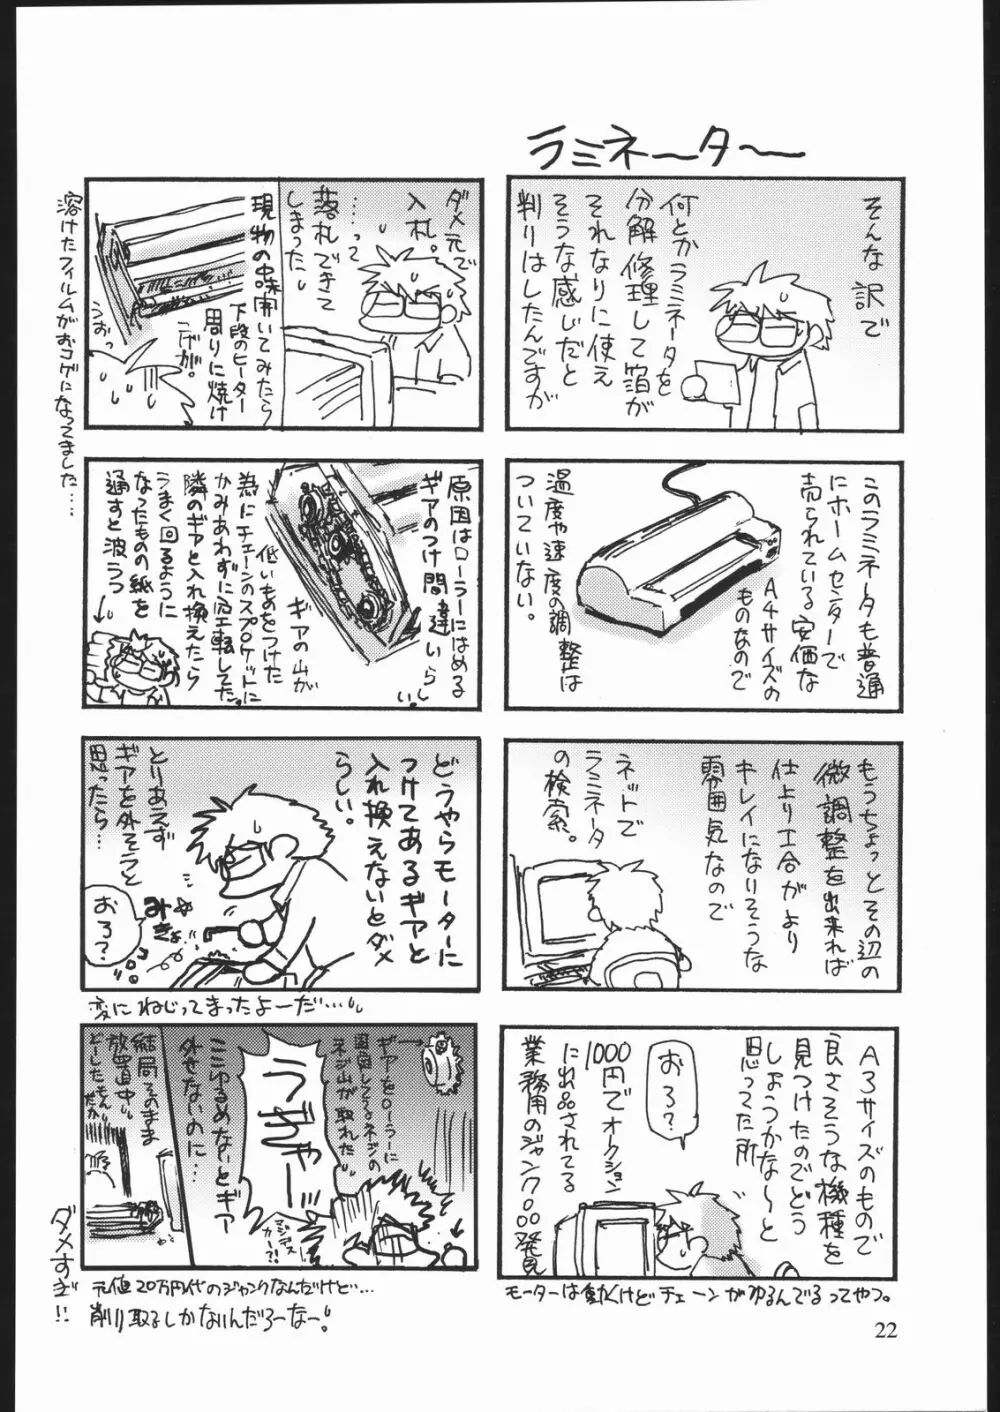 ラミネーター
そんな訳で
何とかラミネータを
分解修理して箔が
それなりに使え
そうな感じだと
判りはしたんですが
このラミネータも普通
にホームセンターで
売られている安価な
A4サイズの
ものなので
温度や速度の調整は
ついていない。
もうちょっとその辺の
微調整を出来れば
仕上り工合がより
キレイになりそうな
雰囲気なので
ネットで
ラミネータ
の検索。
A3サイズのもので
良さそうな機種を
見つけたのでどう
しようかな〜と
思ってた所
おろ?
1000円でオークション
に出品されてる
業務用のジャンク品発見
モーターは動くけどチェーンがゆるんでるってやつ。
ダメ元で
入札。
……って
落札できて
しまったし
現物の中味開いてみたら
下段のヒーター
周りに焼け
コゲが。
うおっ
溶けたフィルムがおコゲになってました…
原因はローラーにはめる
ギアのつけ間違いらしい。
ギアの山が
低いものをつけた
為にチェーンのスプロケットに
かみあわずに空転してた。
隣のギアと入れ換えたら
うまく回るように
なったものの紙を
通すと波うつ
どうやらモーターに
つけてあるギアと
入れ換えないとダメ
らしい。
とりあえず
ギアを外そうと
思ったら…
みきょ
おろ?
変にねじってまったよーだ…
ギアをローラーに
固定してるネジの
ネジ山が取れた
うぎゃー
マジデスカー?!
ここゆるめないとギア
外せないのに…
結局そのまま
放置中
どーしたもんだか
元値20万円代のジャンクなんだけど…
削り取るしかないんだろーなー!
ダメすぎ!!
22